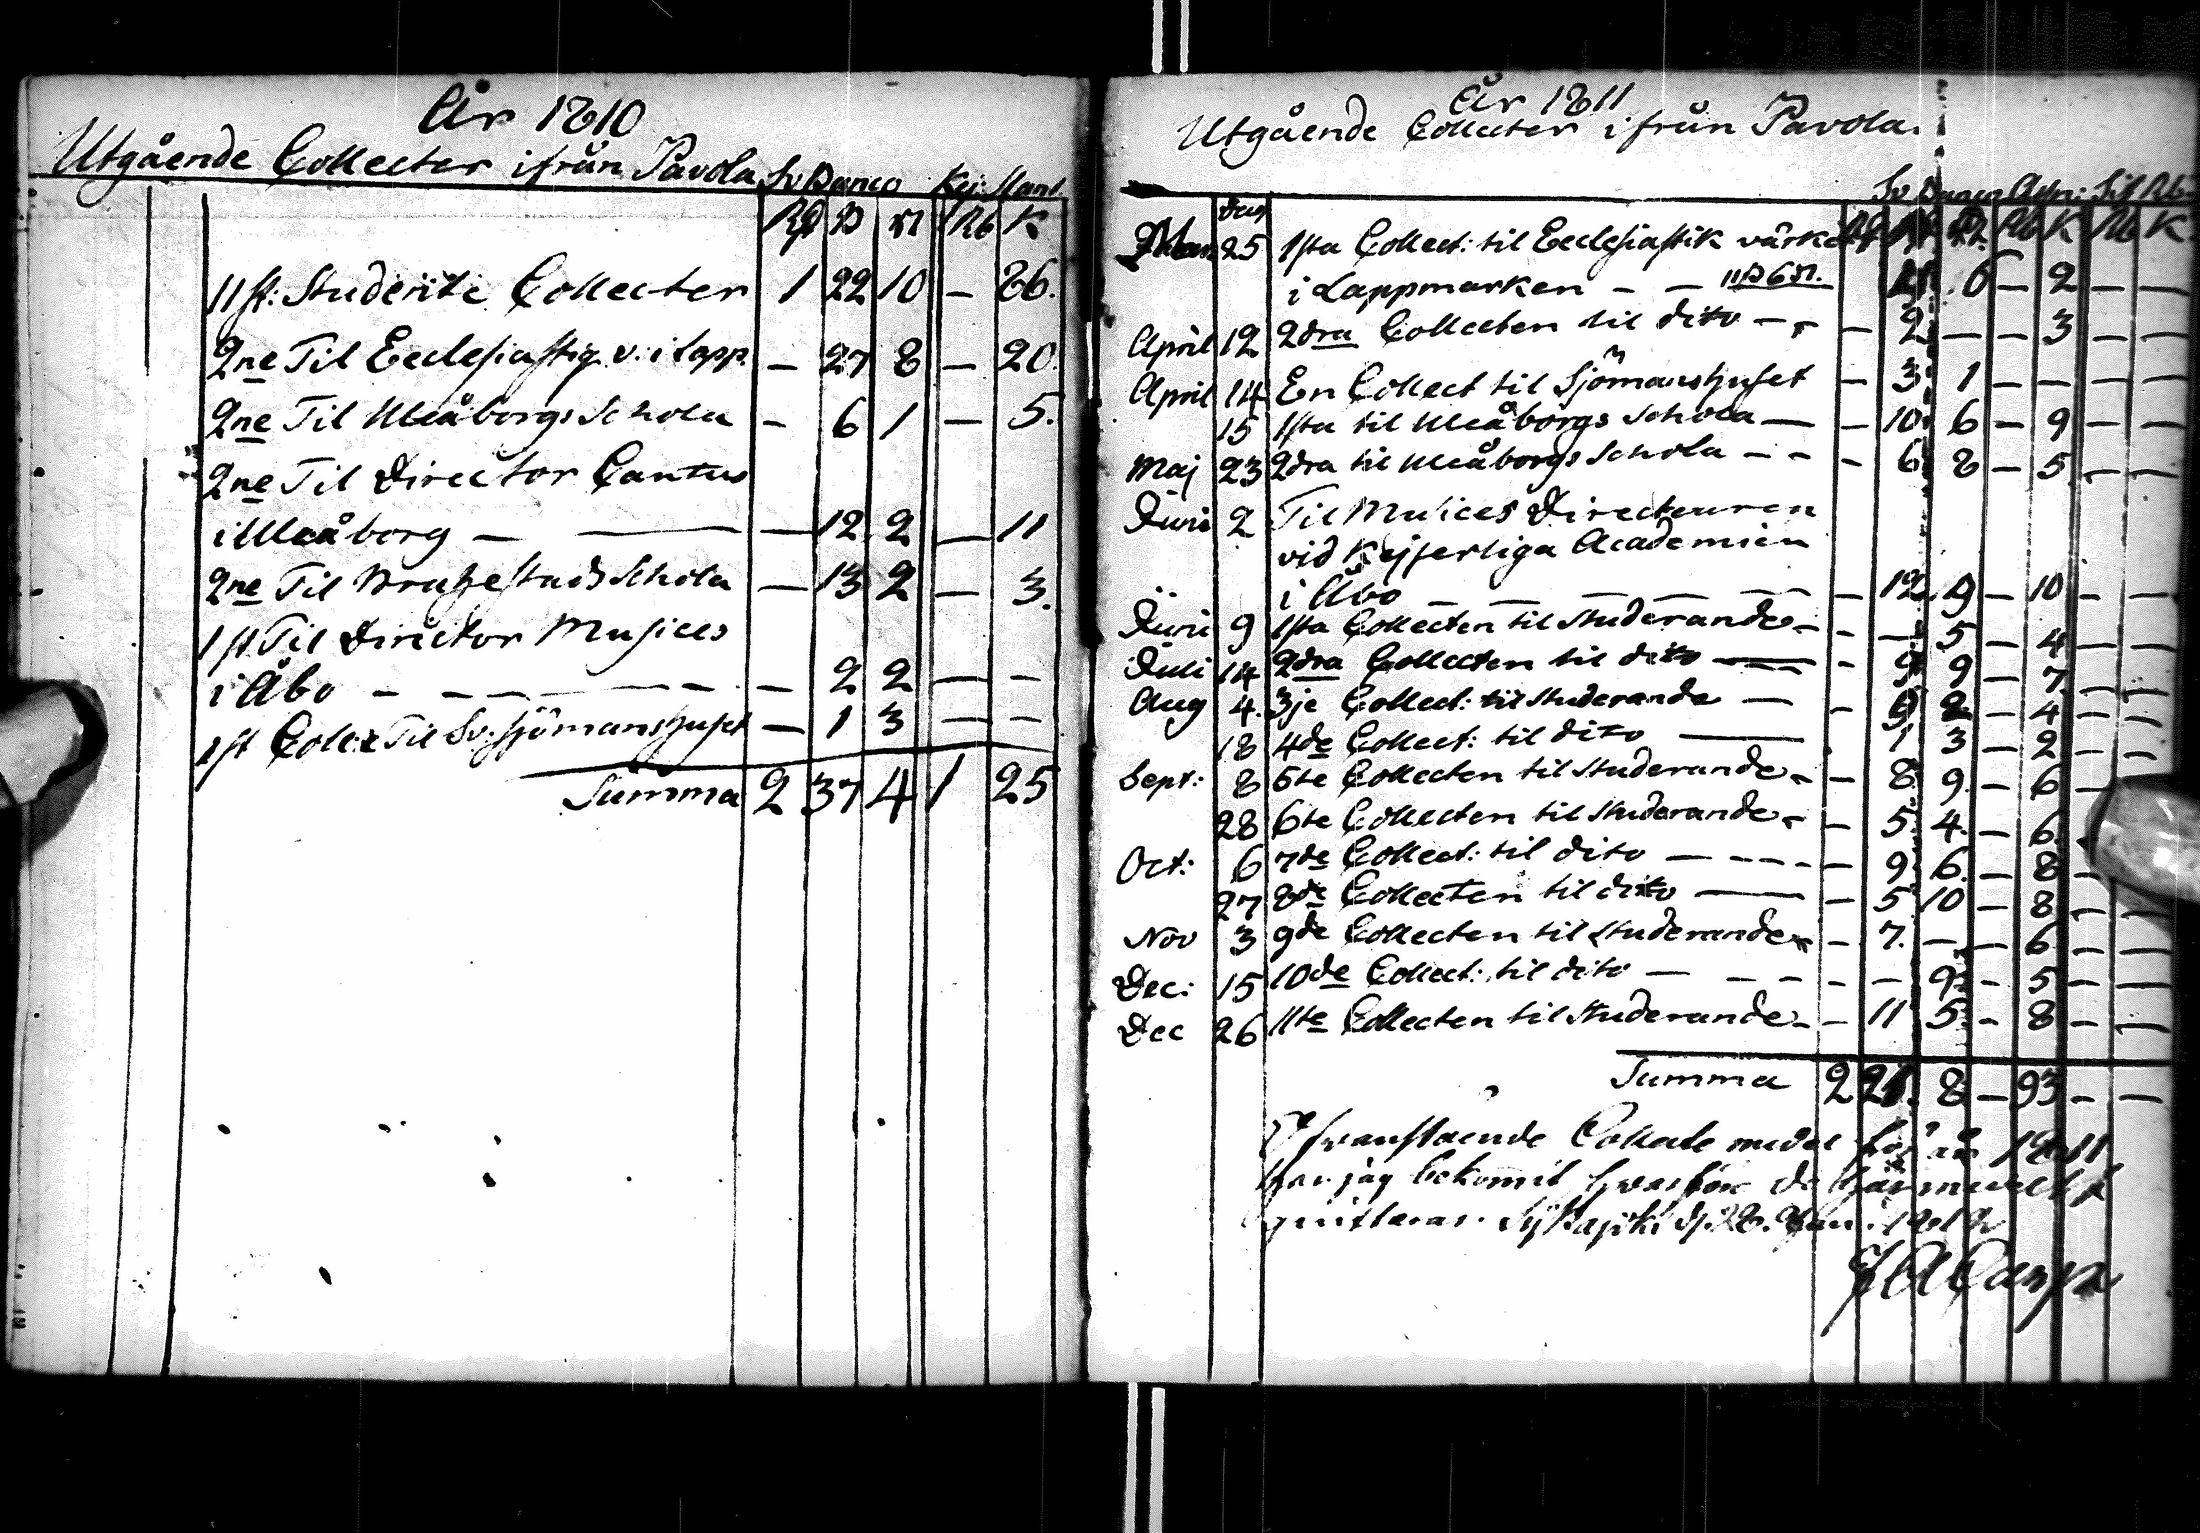 År 1810
Utgående Collecter ifrån Pavola Sv Banco Kej: Mant.
Rd ß rst Rb K
11 st: Studerite Collecter 1 22 10 — 86.
2ne Til Ecclesiastiq v. i Lapp. — 27 8 — 20.
2ne Til Uleåborgs Schola — 6 1 — 5.
2ne Til Director Cantus
i Uleåborg — — 12 2 — 11
2ne Til Brahestads Schola — 13 2 — 3.
1 st Til Director Musices
i Åbo — — — — — 2 2 — —
1 st Coll: Til Sv: Sjömanshuset — 1 3 — —
Summa 2 37 4 1 25
År 1811
Utgående Collecter ifrån Pavola.
Sv Banco Sil Rb
Dag Rb K Rb K
25 1sta Collect: til Ecclesiastik värket
i Lappmarken — — 11 ß 6 rst. 6 — 2 — —
April 12 2dra Collecten til dito — — 2 — — 3 — —
April 14 En Collect til Sjömanshuset — 3 1 — — — —
15 1sta til Uleåborgs Schola — — 10 6 — 9 — —
Maj 23 2dra til Uleåborgs Schola — — — 6 8 — 5 — —
Juni 2 Til Musices Directeuren
vid Kejserliga Academien
i Åbo — — — — — — 12 9 — 10 — —
Juni 9 1sta Collecten til Studerande — — — 5 — 4 — —
Juli 14 2dra Collecten til dito — — 9 9 — 7 — —
Aug 4. 3je Collect: til Studerande — — 2 — 4 — —
18 4de Collect: til dito — 1 3 — 2 — —
Sept: 8 5te Collecten til Studerande — — 8 9 — 6 —
28 6te Collecten til Studerande — — 5 4 — 6.
Oct: 6 7de Collect: til dito — — — — 9 6 — 8
27 8de Collecten til dito — — 5 10 — 8 — —
Nov 3 9de Collecten til Studerande — — 7. — — 6 — —
Dec: 15 10de Collect: til dito — — — — — 9 — 5 — —
Dec 26 11te Collecten til Studerande — — 11 5 — 8 — —
Summa 2 21 8 — 93 — —
Ofvanstående Collecte medel för år 1811
har jag bekommit hvarföre
quitteras. Sijkajoki d. 28. Jan. 1812